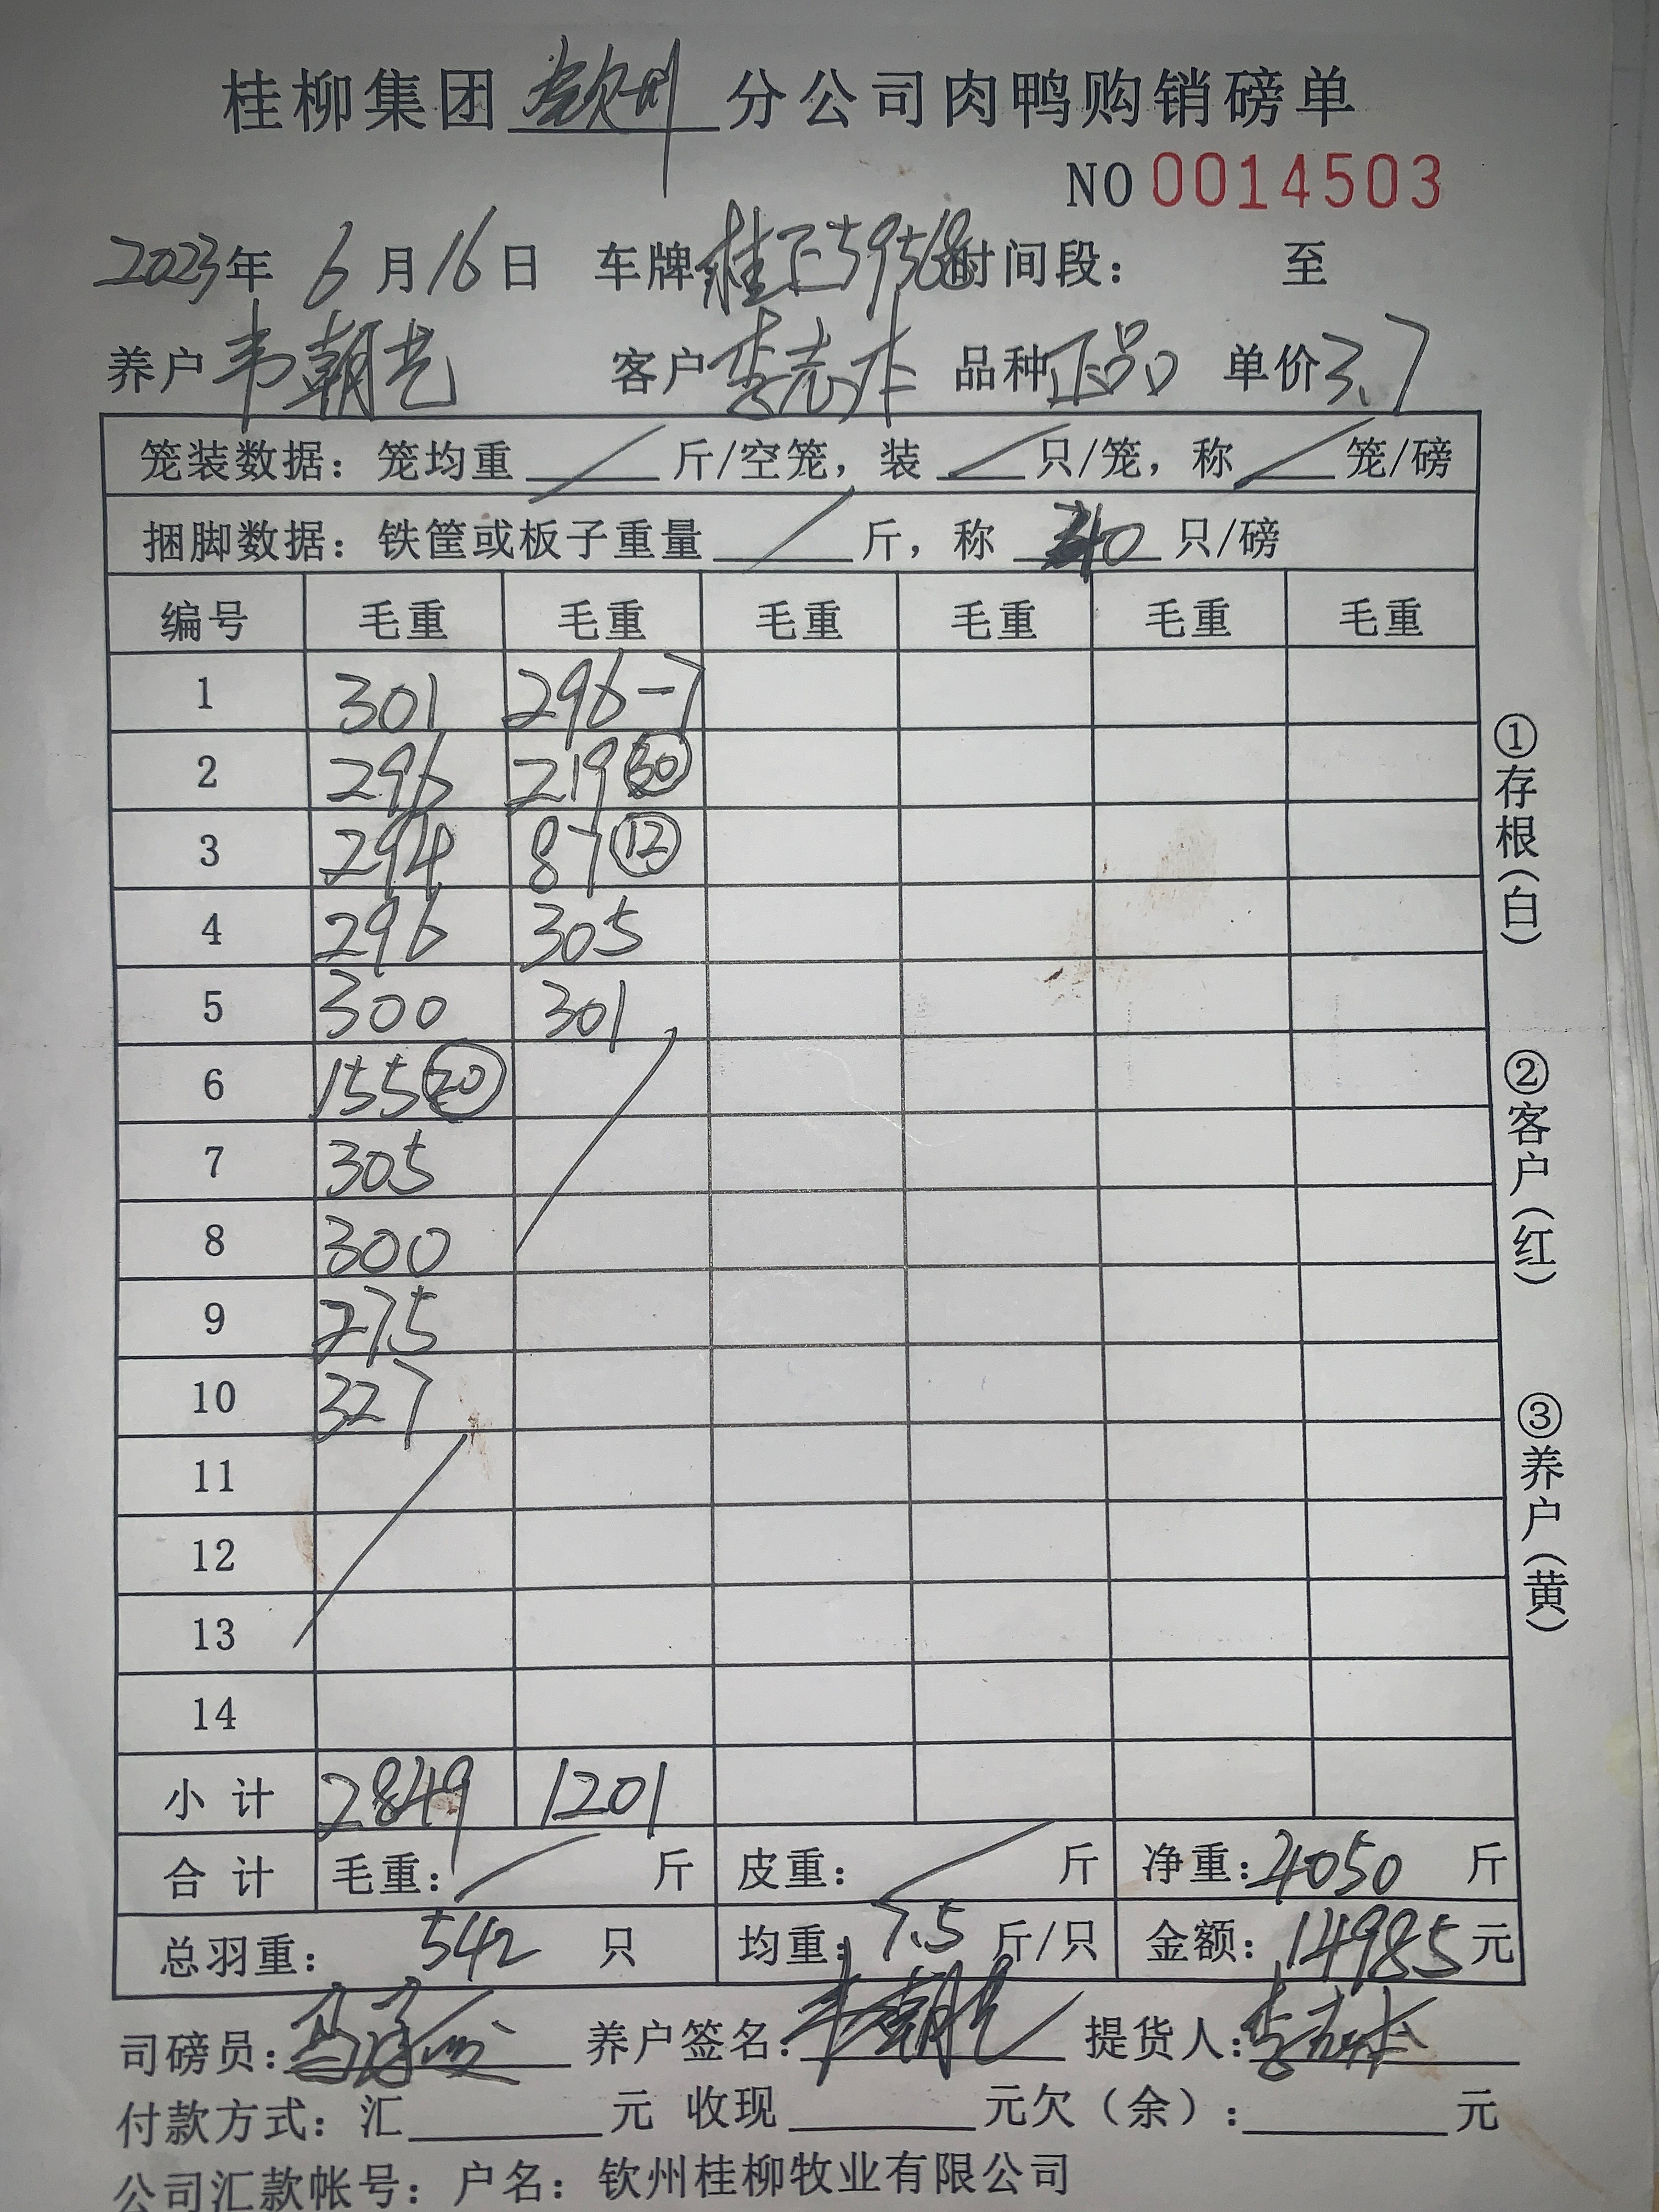 桂柳集团 钦州 分公司肉鸭购销磅单
NO 0014503
2023年 6月16日 车牌桂 59568时间段： 至
养户韦朝 客户李志 品种正品 单价3.7
笼装数据：笼均重 / 斤/空笼，装 / 只/笼，称 / 笼/磅
捆脚数据：铁筐或板子重量 / 斤，称 40 只/磅
编号 毛重 毛重 毛重 毛重 毛重 毛重
1 301 296-7
2 296 219 30
3 294 87 12
4 296 305
5 300 301
6 155 20
7 305
8 300
9 275
10 327
11
12
13
14
小计 2849 1201
合计 毛重： / 斤 皮重： / 斤 净重：4050 斤
总羽重： 542 只 均重：7.5 斤/只 金额：14985元
司磅员： 养户签名：韦朝 提货人：李志
付款方式：汇 元 收现 元欠（余）： 元
公司汇款帐号：户名：钦州桂柳牧业有限公司
①存根（白）
②客户（红）
③养户（黄）